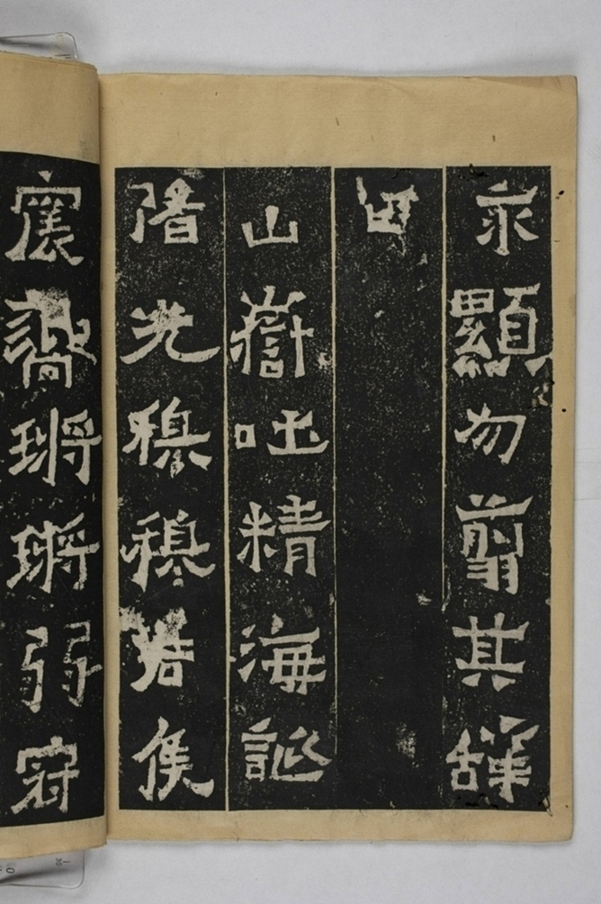 永顯勿翦其辭
曰
山嶽吐精海誕
陼光穆穆君侯
震響鏘鏘弱冠